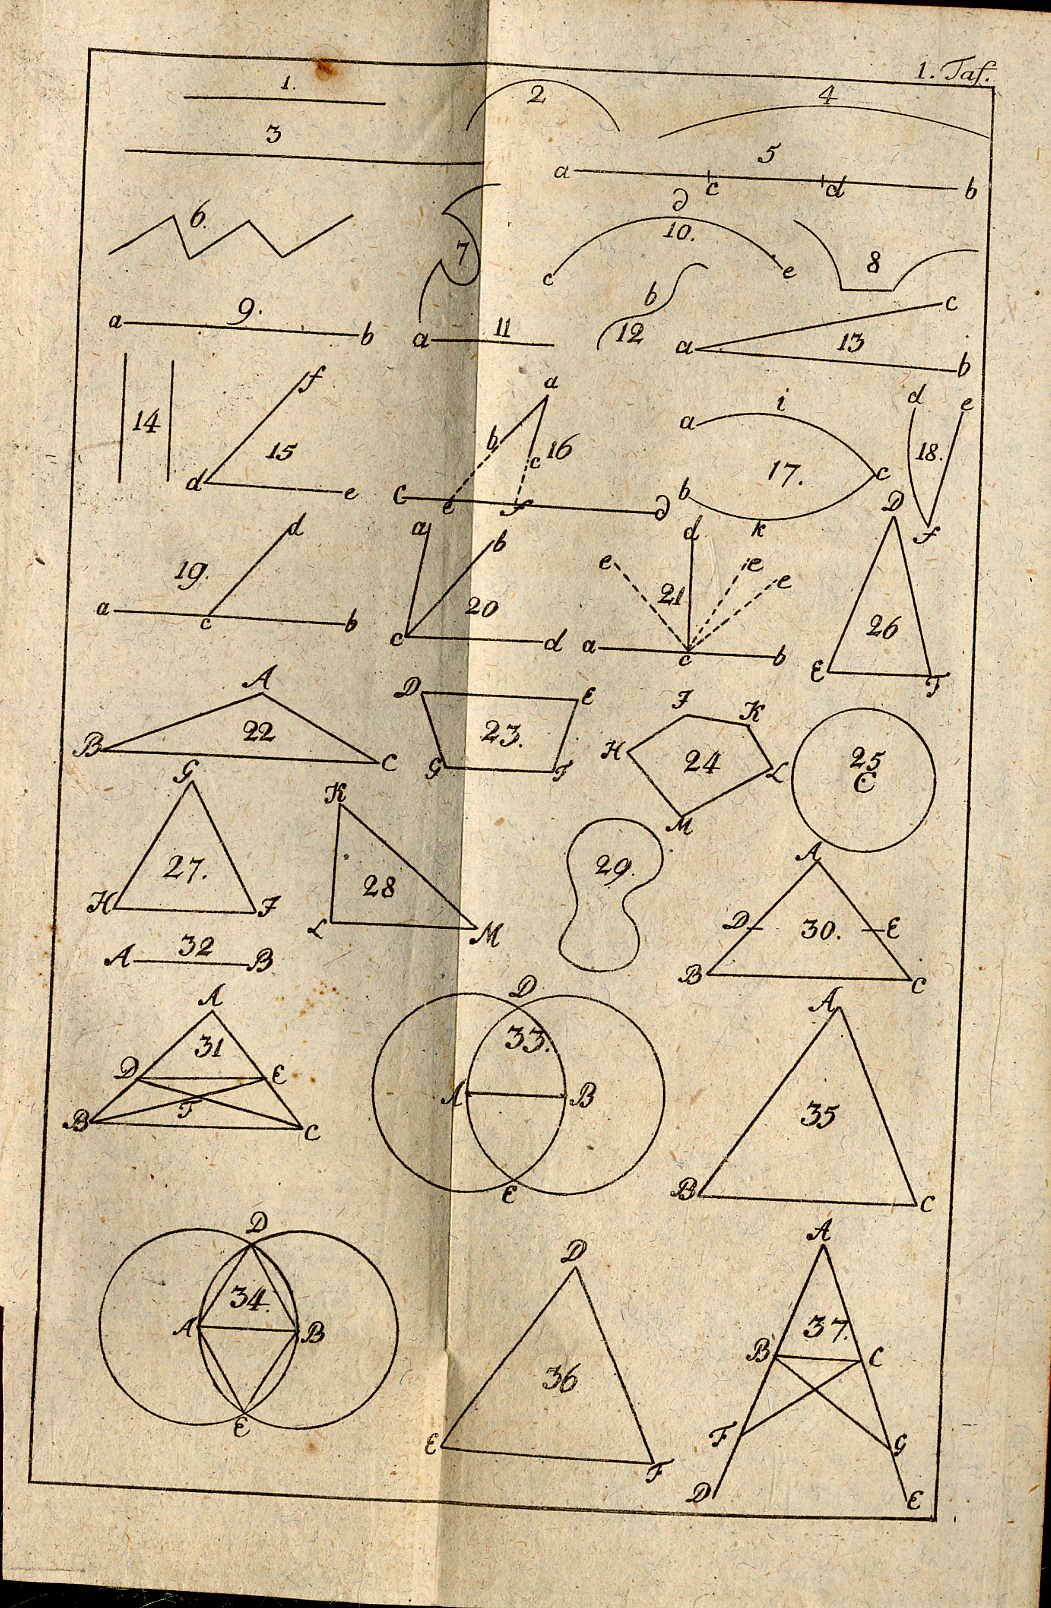 1. Taf.
1.
2
4
3
5
a c d b
6.
7
∂
10.
c e
8
9.
a b
11
a
b
12
13
a c b
14
15
f d e
16
a b c
C e f ∂
17.
a i c b k
18.
d e f
19.
a c d b
20
a b c d
21
e d e e
a c b
26
D E F
22
A B C
23.
D E G F
24
F K H L M
25
C
27.
G H F
28
K L M
29.
30.
A D E B C
32
A B
31
A D E B F C
33.
D A B E
35
A B C
34.
D A B E
36
D E F
37.
A B C F G D E